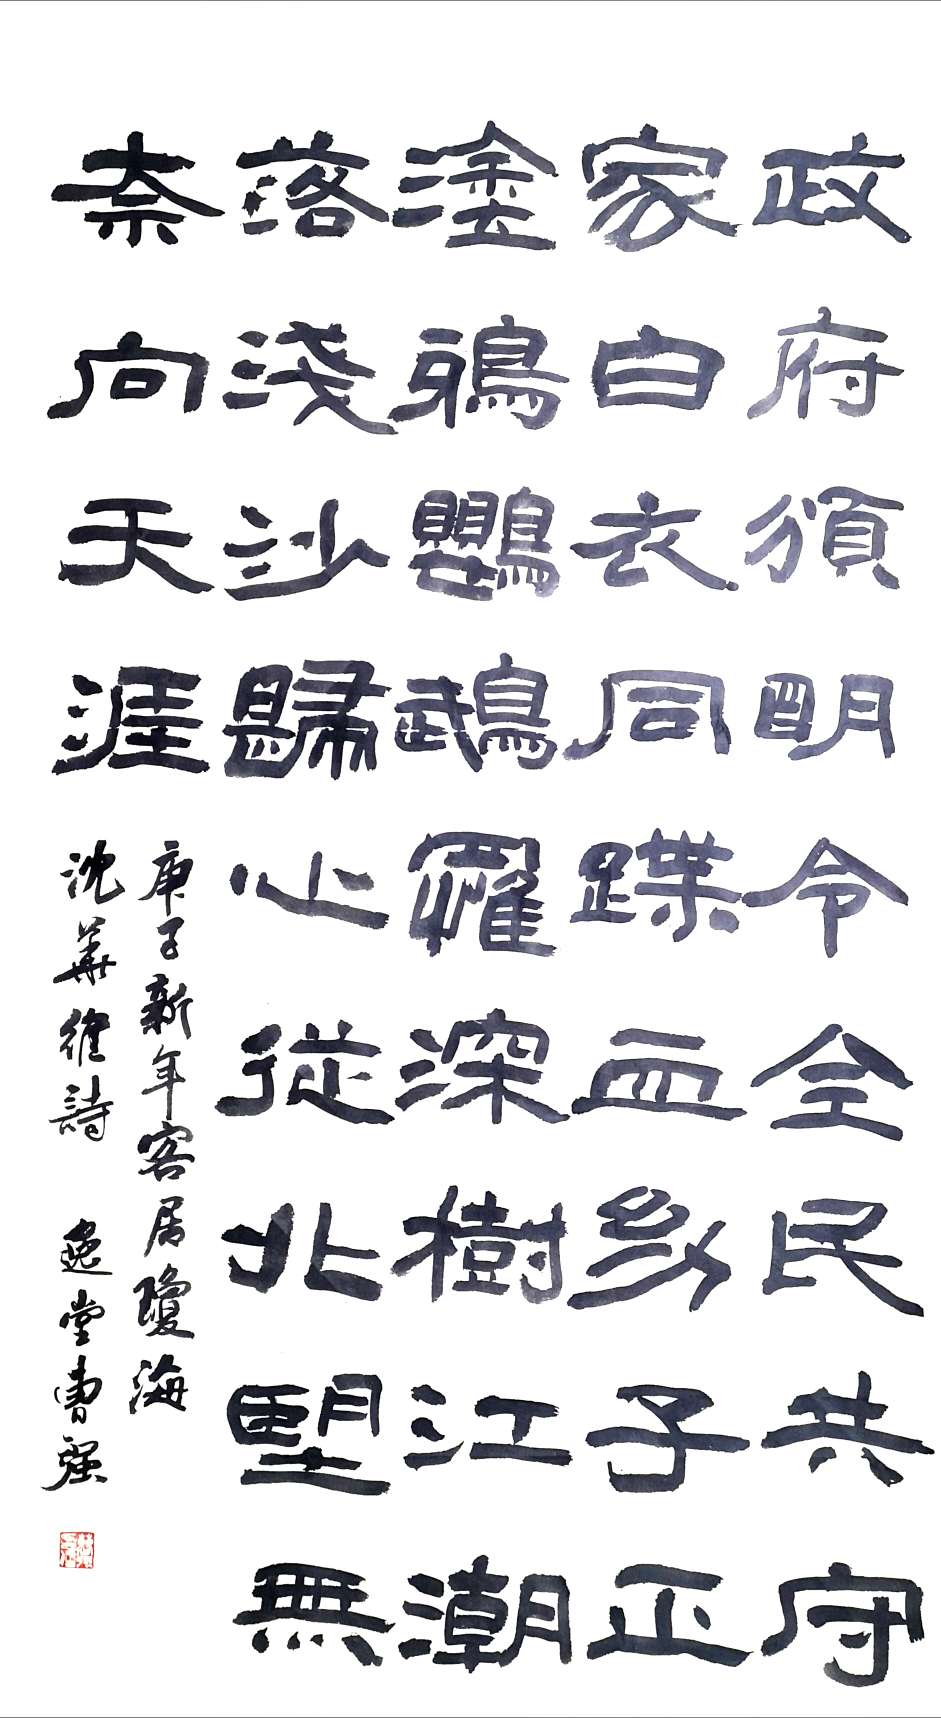 政府頒明令全民共守
家白衣同蹀血幼子正
塗鴉鸚鵡羅深樹江潮
落淺沙歸心從北望無
奈向天涯
庚子新年客居瓊海
沈華維詩 逸堂曹強